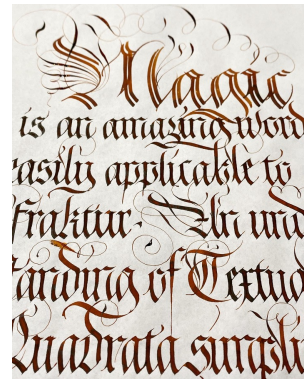 Magic
is an amazing word
easily applicable to
Fraktur. An und
tanding of Textu
Quadrata surpli